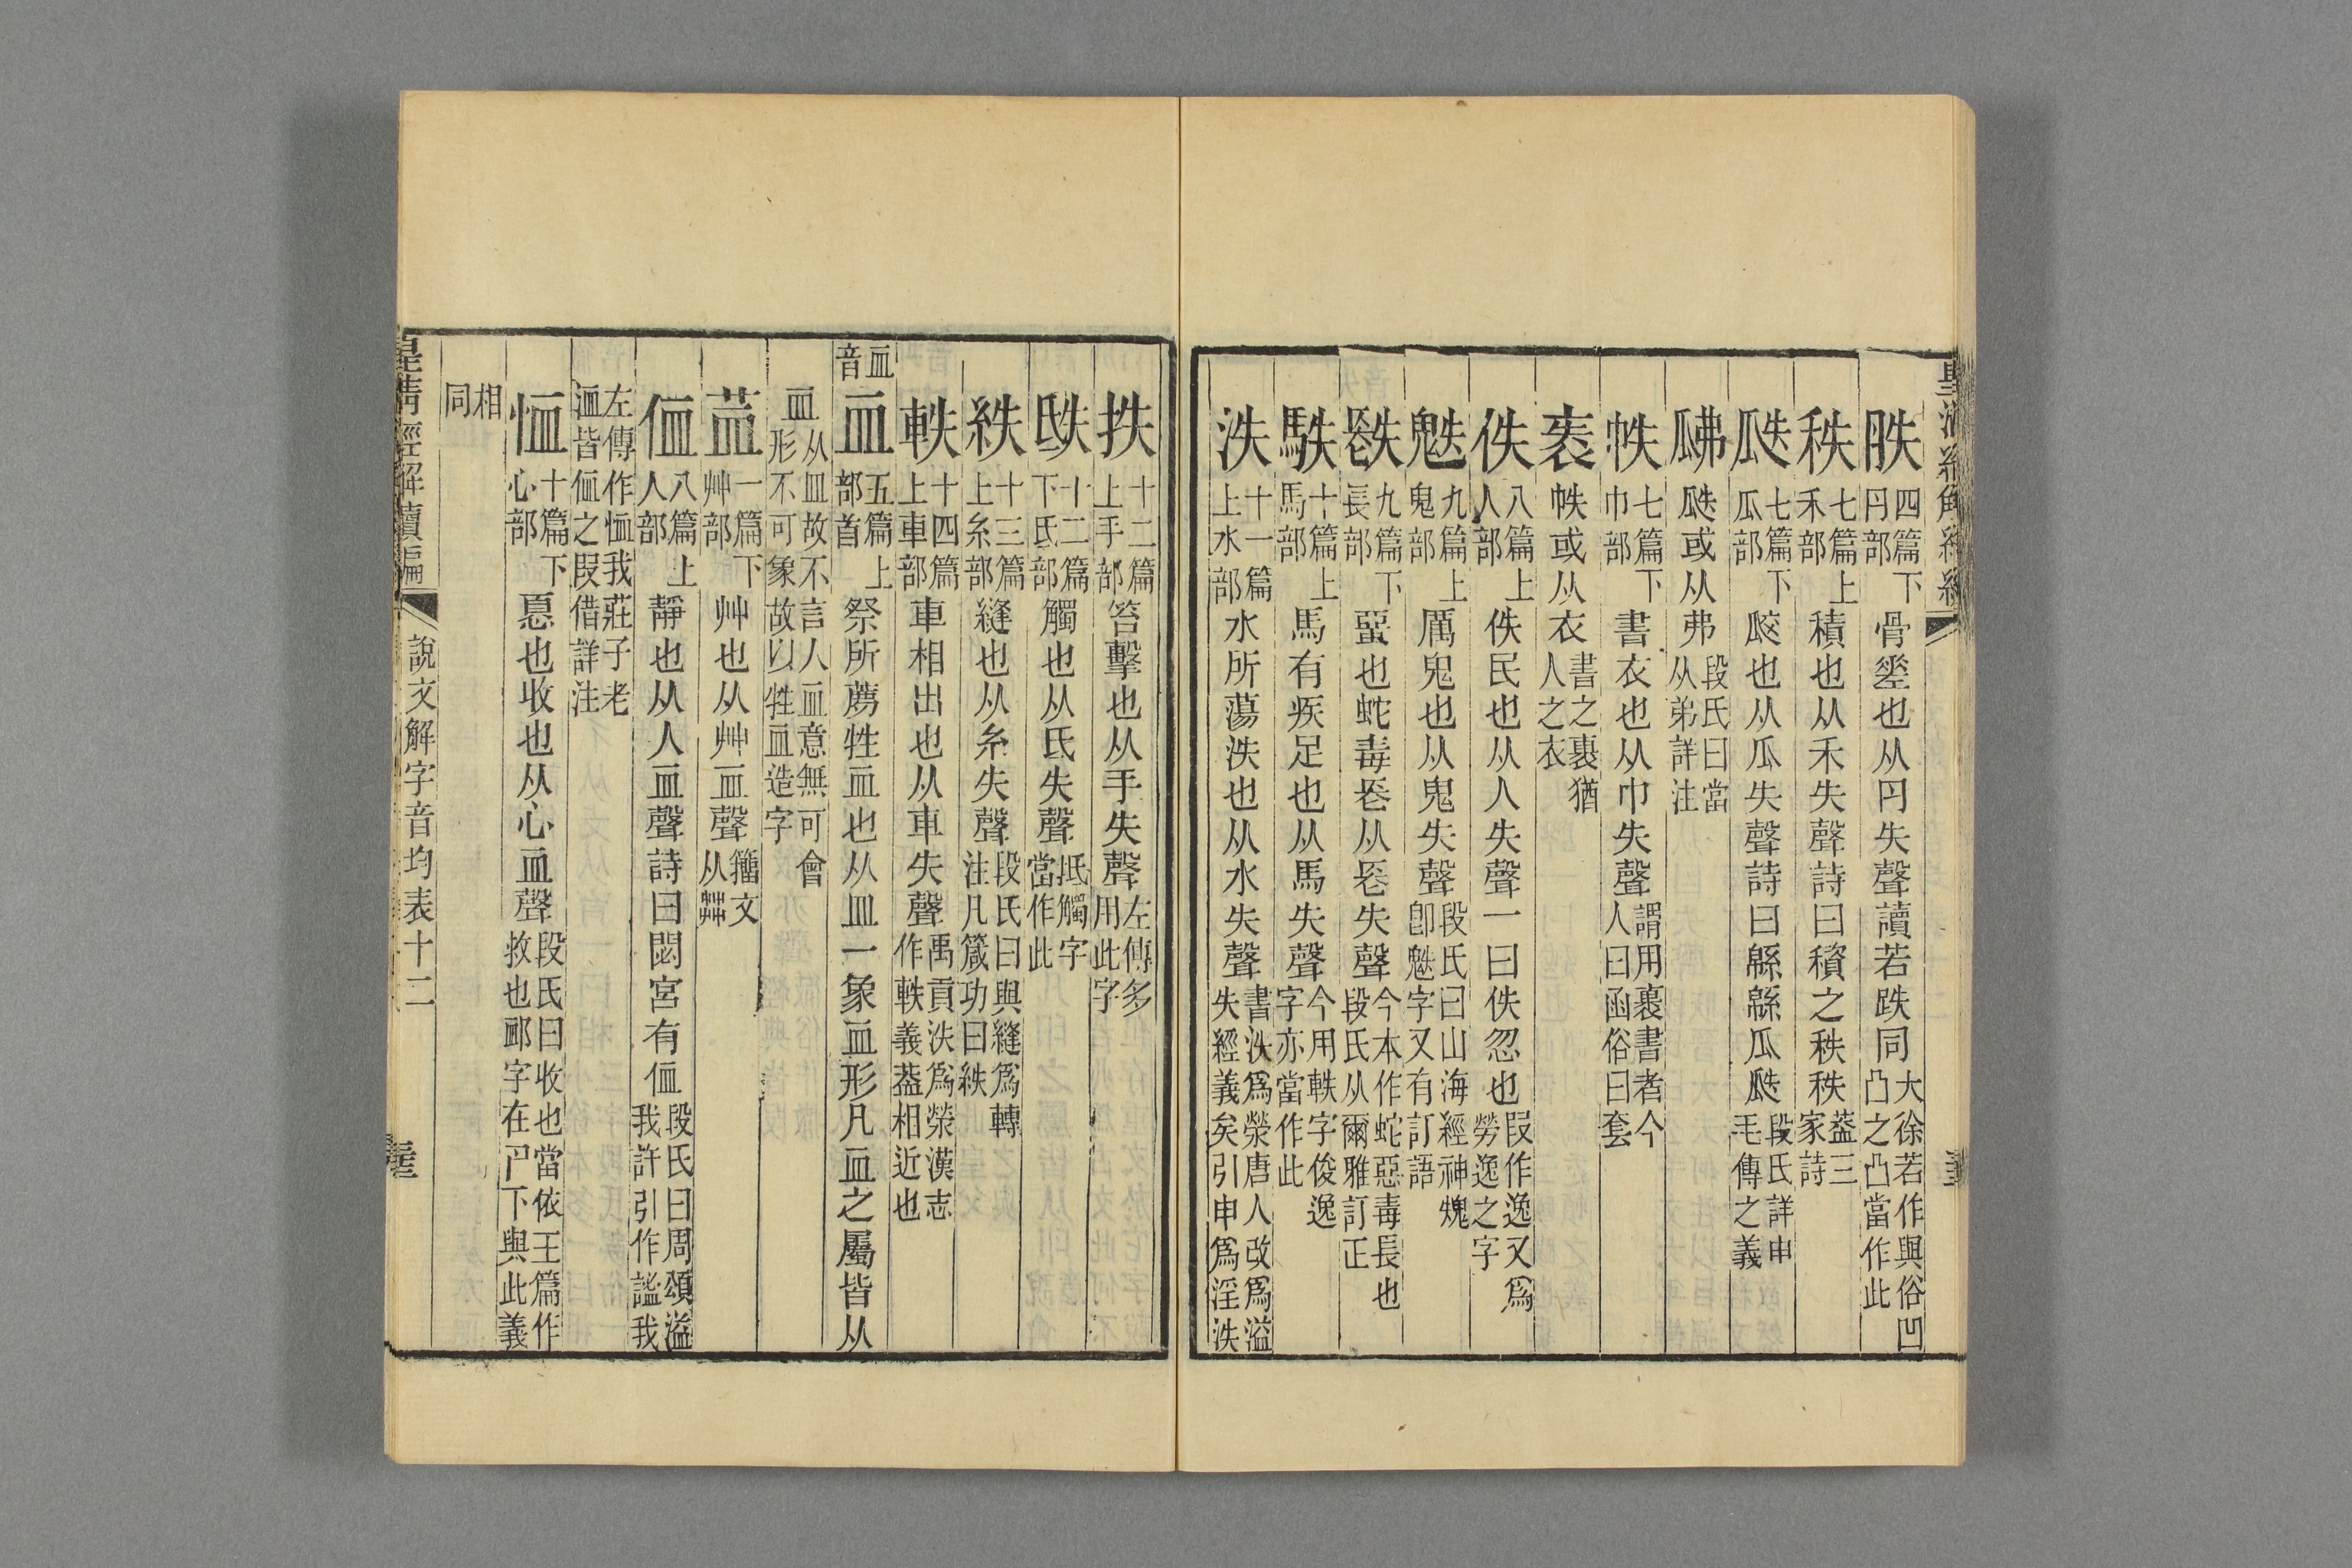 胅四篇下肉部骨㞷也从肉失聲讀若跌同大徐若作與俗凹凸之凸當作此
秩七篇上禾部積也从禾失聲詩曰稽之秩秩葢三家詩
瓞七篇下瓜部㼎也从瓜失聲詩曰緜緜瓜瓞段氏詳申毛傳之義
𤬏瓞或从弗段氏曰當从弟詳注
帙七篇下巾部書衣也从巾失聲謂用裹書者今人曰函俗曰套
袠帙或从衣書之裹猶人之衣
佚八篇上人部佚民也从人失聲一曰佚忽也叚作逸又爲勞逸之字
魅九篇上鬼部厲鬼也从鬼失聲段氏曰山海經神䰡卽魅字又有訂語
镻九篇下長部蝁也蛇毒長从長失聲今本作蛇惡毒長也段氏从爾雅訂正
駃十篇上馬部馬有疾足也从馬失聲今用軼字俊逸字亦當作此
泆十一篇上水部水所蕩泆也从水失聲書泆爲滎唐人改爲溢失經義矣引申爲淫泆
抶十二篇上手部笞擊也从手失聲左傳多用此字
䟡十二篇下氐部觸也从氐失聲抵觸字當作此
紩十三篇上糸部縫也从糸失聲段氏曰與縫爲轉注凡箴功曰紩
軼十四篇上車部車相出也从車失聲禹貢泆爲滎漢志作軼義葢相近也
血音血五篇上部首祭所薦牲血也从皿一象血形凡血之屬皆从
血从皿故不言人血意無可會形不可象故以牲血造字
䒸一篇下艸部艸也从艸血聲籒文从茻
侐八篇上人部靜也从人血聲詩曰閟宮有侐段氏曰周頌溢我許引作謐我
左傳作恤我莊子老洫皆侐之叚借詳注
恤十篇下心部𢝊也收也从心血聲段氏曰收也當依玉篇作救也卹字在卪下與此義
相同
皇清經解續編
說文解字音均表十二